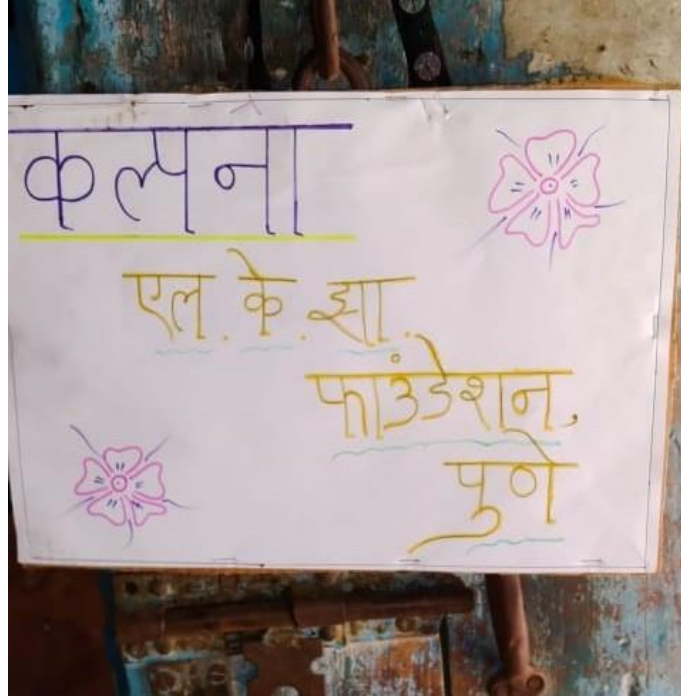 कल्पना
एल. के. झा.
फाउंडेशन,
पुणे